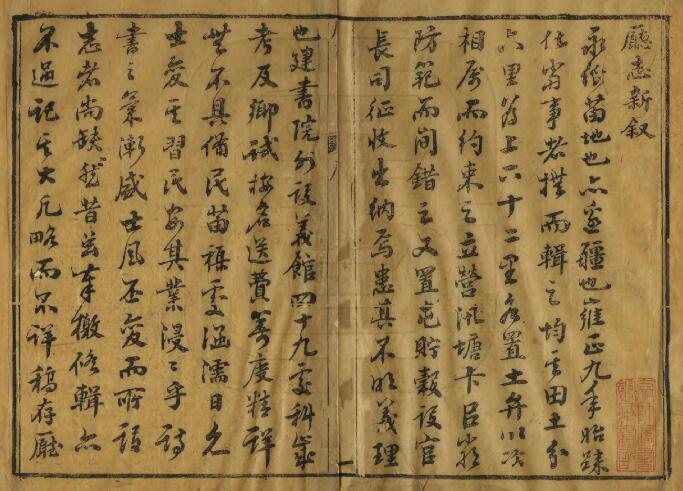 廳志新叙
永綏苗地也亦邊疆也雍正九年始隸
任當事者撫而輯之均其田土分
六里為上下十二里各置土弁以次
相屬而約束之立營汛塘卡
防範而間錯之又置屯貯穀設官
長司征收出納焉患其不明義理
也建書院外設義館四十九處科歲
考及鄉試按名送費籌度精詳
無不具備民苗裸處涵濡日久
士變其習民安其業浸〻乎詩
書之氣漸盛士風丕變而所謂
志者尚缺然昔蓋奉檄修輯亦
不過記其大凡略而不詳稿存廳